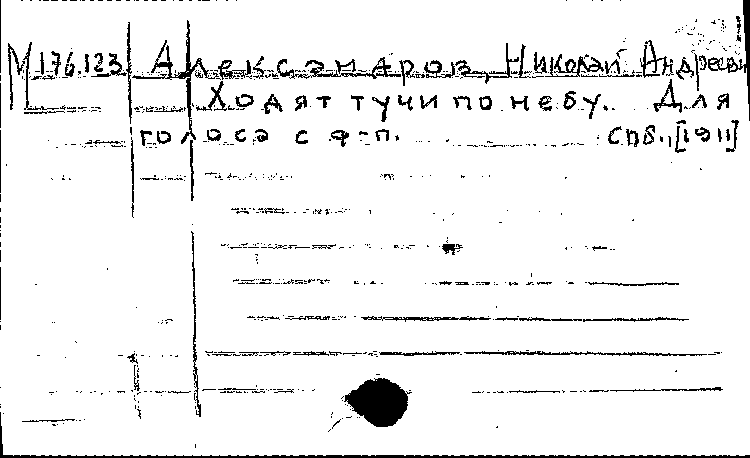 М 176.123 Александров, Николай Андреевич
Ходят тучи по небу.. Для
голоса с ф-п. Спб., [1911]